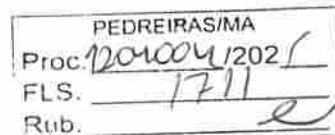 PEDREIRAS/MA
Proc. 1201004/202
FLS. 1711
Rub.